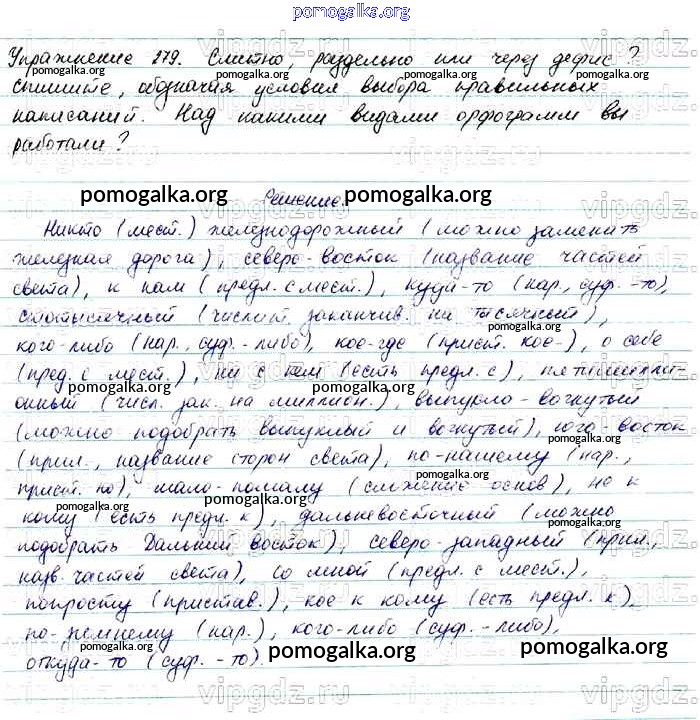 pomogalka.org
Упражнение 279. Слитно, раздельно или через дефис?
pomogalka.org pomogalka.org pomogalka.org
Спишите, обозначая условия выбора правильных
написаний. Над какими видами орфограмм вы
pomogalka.org pomogalka.org
работали?
pomogalka.org Решение. pomogalka.org
Никто (мест.) железнодорожный (можно заменить
железная дорога), северо-восток (название частей
света), к нам (предл. с мест.), куда-то (нар., суф. -то),
стотысячный (числит. заканчив. на тысячный),
кого-либо (нар., суф. -либо), кое-где (прист. кое-), о себе
(пред. с мест.), ни с кем (есть предл. с), пятимилли-
онный (числ. зак. на миллион.), выпукло-вогнутый
(можно подобрать выпуклый и вогнутый), юго-восток
(прил., название сторон света), по-нашему (нар.,
прист. по), мало-помалу (сложение основ), не к
кому (есть предл. к), дальневосточный (можно
подобрать Дальний восток), северо-западный (прил.,
назв. частей света), со мной (предл. с мест.),
попросту (пристав.), кое к кому (есть предл. к),
по-зимнему (нар.), кого-либо (суф. -либо),
откуда-то (суф. -то). pomogalka.org pomogalka.org